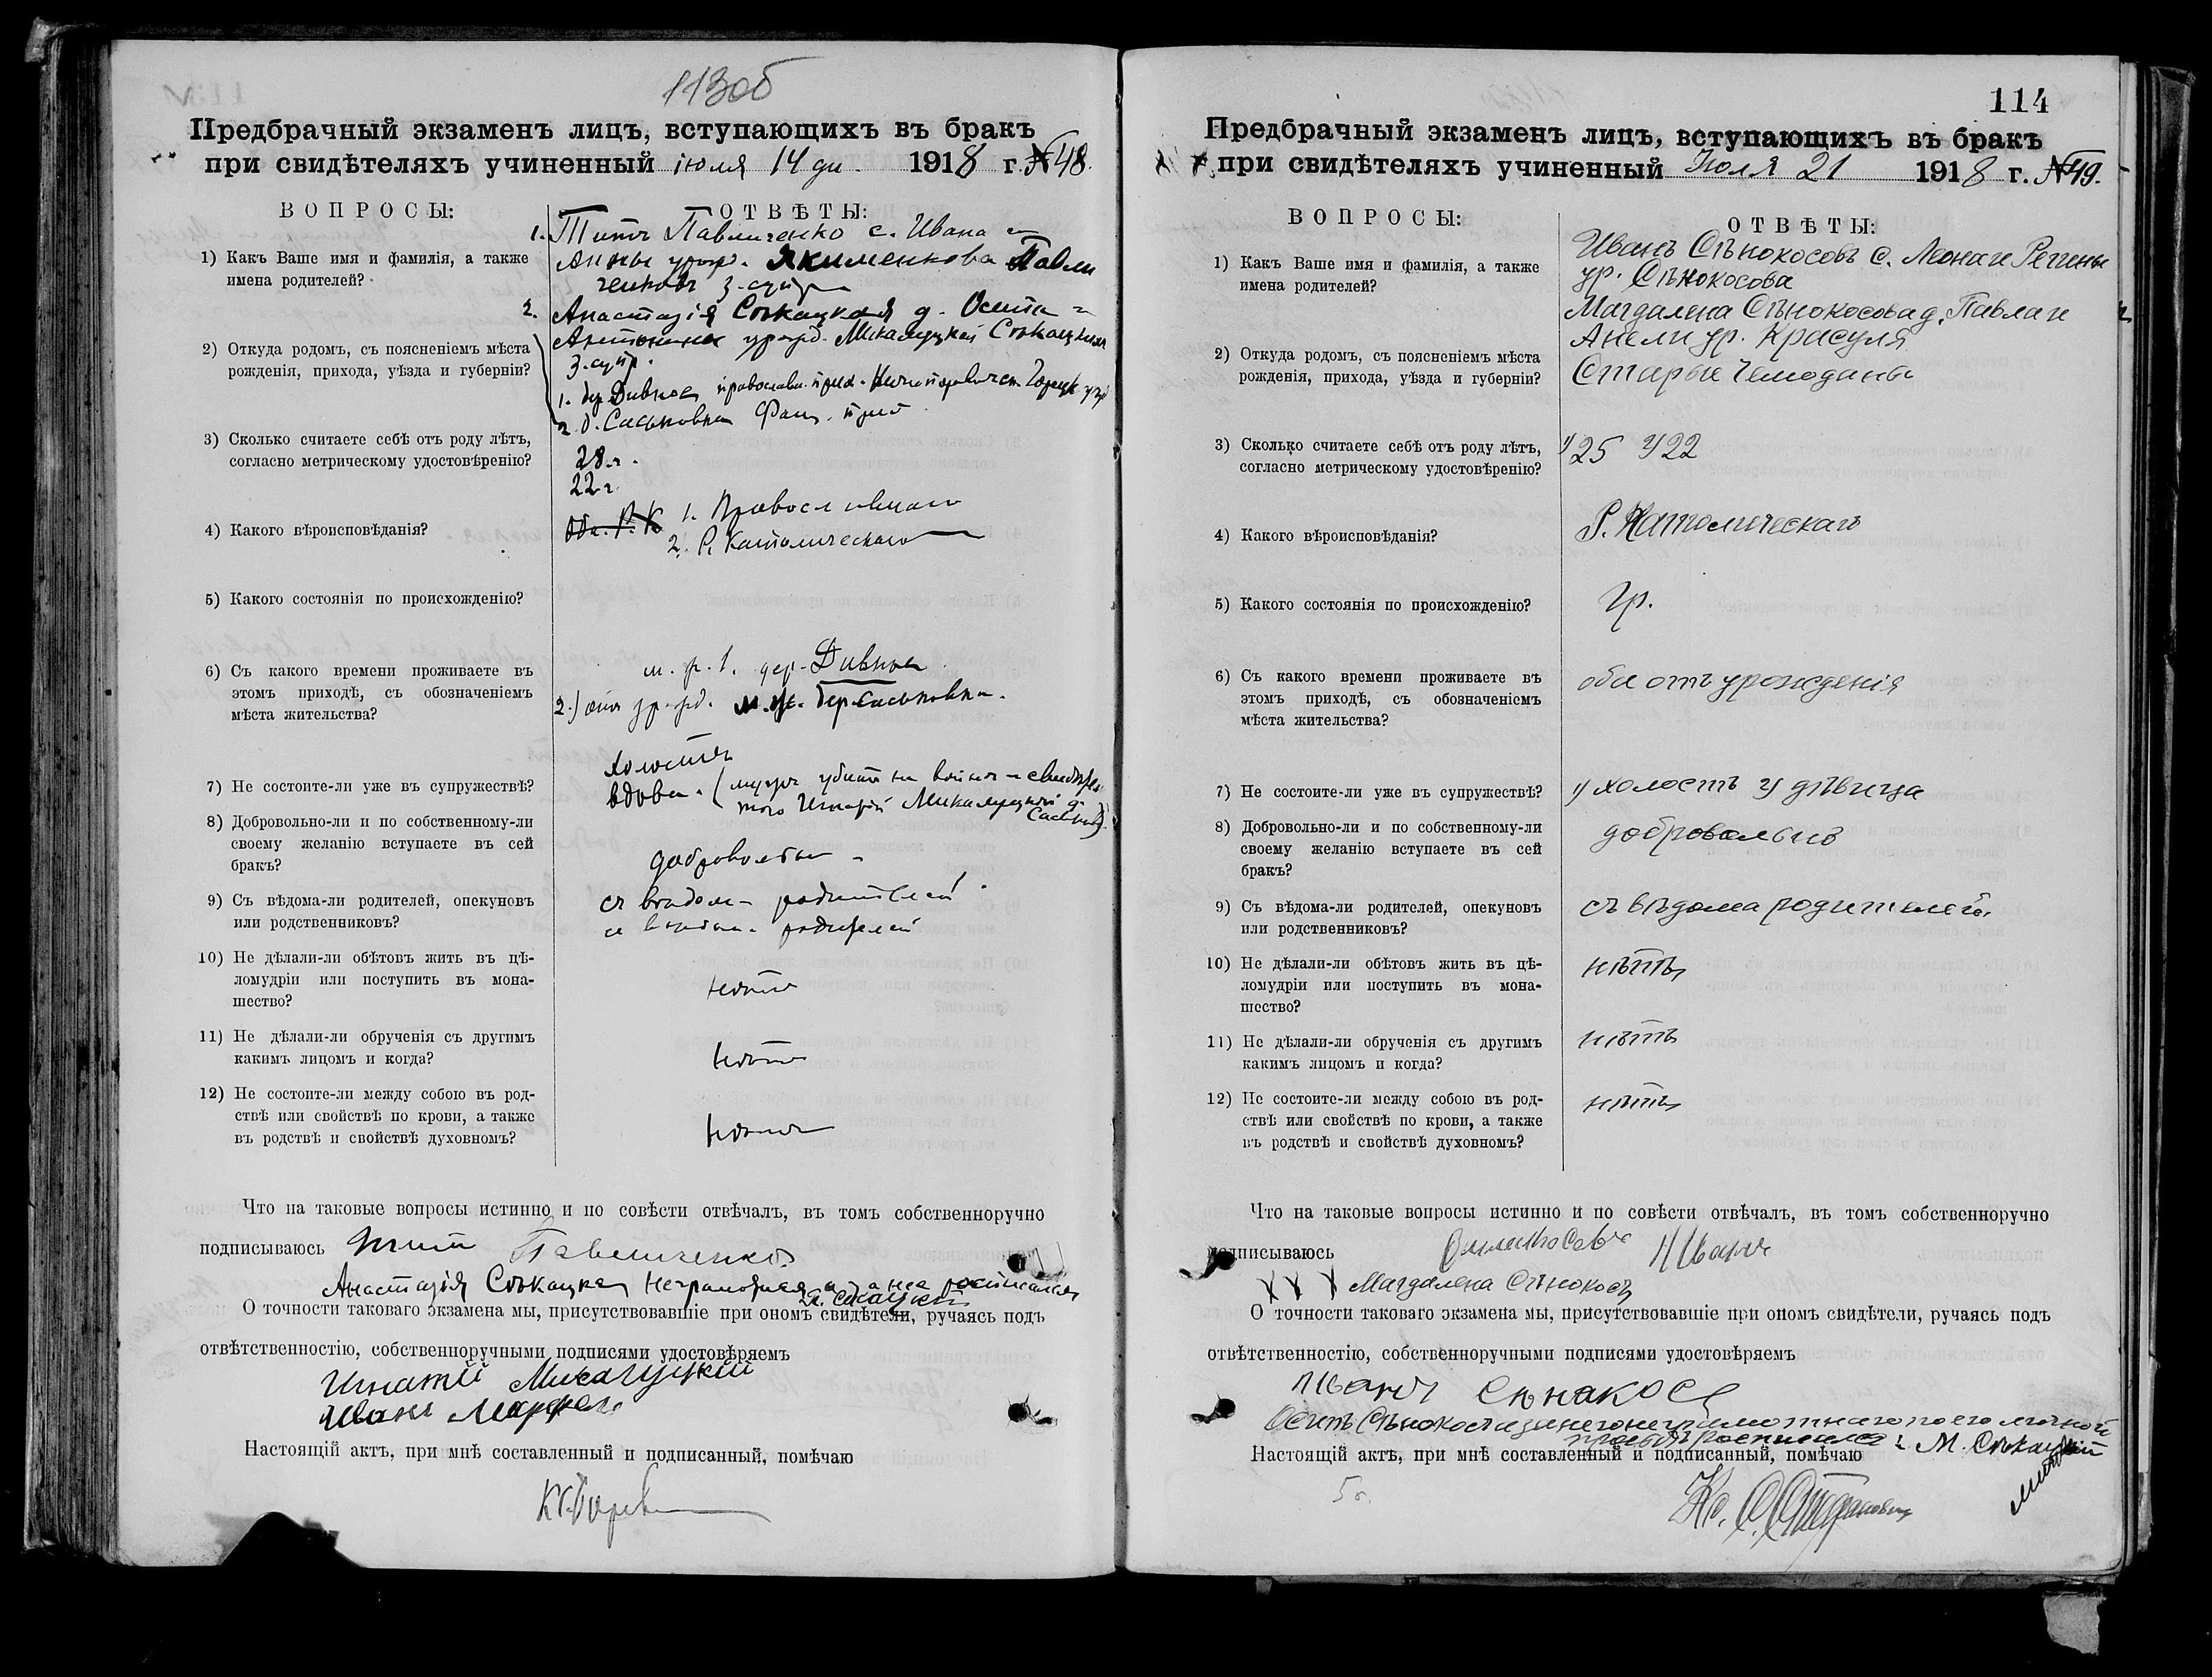 113об
Предбрачный экзаменъ лицъ, вступающихъ въ бракъ
при свидѣтеляхъ учиненный іюля 14 дн. 1918 г. №48.
ВОПРОСЫ:
ОТВѢТЫ:
1. Титъ Павличенко с. Ивана и
1) Какъ Ваше имя и фамилія, а также
имена родителей?
Анны урожд. Якименкова Павли
ченковъ з. супр
2. Анастазія Сѣкацкая д. Осипа и
Антонины урожд. Микалуцкой Сѣкацкихъ
з. супр.
2) Откуда родомъ, съ поясненіемъ мѣста
рожденія, прихода, уѣзда и губерніи?
1. дер. Дивная православн. прих.
2. д. Саськовка Фащ. прих
3) Сколько считаете себѣ отъ роду лѣтъ,
согласно метрическому удостовѣренію?
28 г.
22 г.
4) Какого вѣроисповѣданія?
Оба. Р. К 1. Православнаго
2. Р. Католическаго
5) Какого состоянія по происхожденію?
6) Съ какого времени проживаете въ
этомъ приходѣ, съ обозначеніемъ
мѣста жительства?
1. дер. Дивная
2.) отъ урожд. м. ж. дер Саськовка.
7) Не состоите-ли уже въ супружествѣ?
холостъ
вдова. (мужъ убитъ на войнѣ
Игнатій Микалуцкій д.
8) Добровольно-ли и по собственному-ли
своему желанію вступаете въ сей
бракъ?
добровольно
9) Съ вѣдома-ли родителей, опекуновъ
или родственниковъ?
съ вѣдома родителей
съ вѣдома родителей
10) Не дѣлали-ли обѣтовъ жить въ цѣ-
ломудріи или поступить въ мона-
шество?
нѣтъ
11) Не дѣлали-ли обрученія съ другимъ
какимъ лицомъ и когда?
нѣтъ
12) Не состоите-ли между собою въ род-
ствѣ или свойствѣ по крови, а также
въ родствѣ и свойствѣ духовномъ?
нѣтъ
Что на таковые вопросы истинно и по совѣсти отвѣчалъ, въ томъ собственноручно
подписываюсь Титъ Павличенко
Анастазія Сѣкацкая неграмотная а за нея росписался
О точности таковаго экзамена мы, присутствовавшіе при ономъ свидѣтели, ручаясь подъ
отвѣтственностію, собственноручными подписями удостовѣряемъ
Игнатій Микалуцкій
Иванъ
Настоящій актъ, при мнѣ составленный и подписанный, помѣчаю
114
Предбрачный экзаменъ лицъ, вступающихъ въ бракъ
при свидѣтеляхъ учиненный Іюля 21 1918 г. №49.
ВОПРОСЫ:
ОТВѢТЫ:
1) Какъ Ваше имя и фамилія, а также
имена родителей?
Иванъ Сѣнокосовъ с. Леона и Регины
ур. Сѣнокосова
Магдалена Сѣнокосова д. Павла и
Анели ур. Красуля
2) Откуда родомъ, съ поясненіемъ мѣста
рожденія, прихода, уѣзда и губерніи?
Старые Чемоданы
3) Сколько считаете себѣ отъ роду лѣтъ,
согласно метрическому удостовѣренію?
1/ 25 2/ 22
4) Какого вѣроисповѣданія?
Р. Католическаго
5) Какого состоянія по происхожденію?
гр.
6) Съ какого времени проживаете въ
этомъ приходѣ, съ обозначеніемъ
мѣста жительства?
оба отъ урожденія
7) Не состоите-ли уже въ супружествѣ?
1/ холостъ 2/ дѣвица
8) Добровольно-ли и по собственному-ли
своему желанію вступаете въ сей
бракъ?
добровольно
9) Съ вѣдома-ли родителей, опекуновъ
или родственниковъ?
съ вѣдома родителей
10) Не дѣлали-ли обѣтовъ жить въ цѣ-
ломудріи или поступить въ мона-
шество?
нѣтъ
11) Не дѣлали-ли обрученія съ другимъ
какимъ лицомъ и когда?
нѣтъ
12) Не состоите-ли между собою въ род-
ствѣ или свойствѣ по крови, а также
въ родствѣ и свойствѣ духовномъ?
нѣтъ
Что на таковые вопросы истинно и по совѣсти отвѣчалъ, въ томъ собственноручно
подписываюсь Иванъ
X X X Магдалена Сѣнокосъ
О точности таковаго экзамена мы, присутствовавшіе при ономъ свидѣтели, ручаясь подъ
отвѣтственностію, собственноручными подписями удостовѣряемъ
Иванъ Сѣнакосъ
Осипъ Сѣнокосъ а за него неграмотнаго по его личной
просьбѣ росписался М. Сѣкацкій
Настоящій актъ, при мнѣ составленный и подписанный, помѣчаю